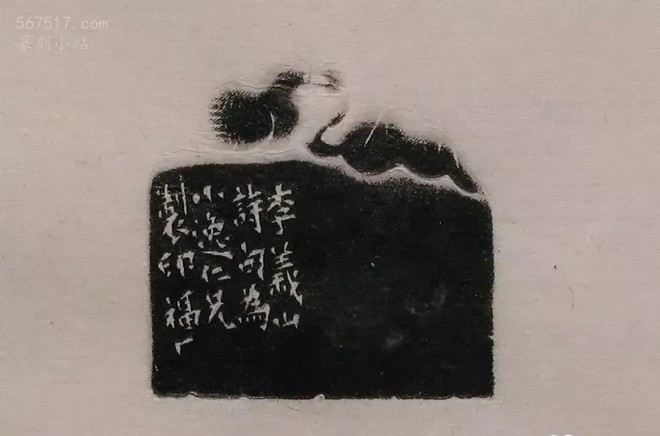 567517.com
篆刻小站
李義山
詩句為
小逸仁兄
製印福厂